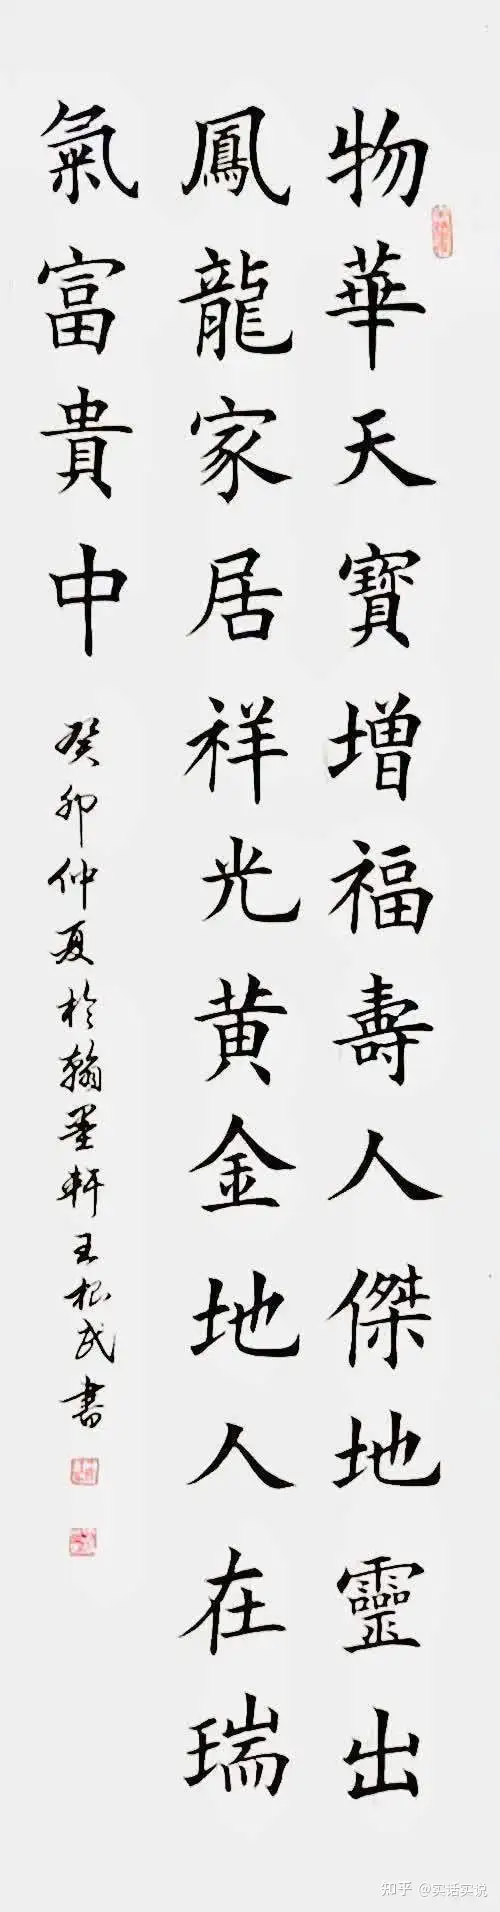 物華天寶增福壽人傑地靈出
鳳龍家居祥光黃金地人在瑞
氣富貴中
癸卯仲夏於翰墨軒王根武書
知乎 @实话实说